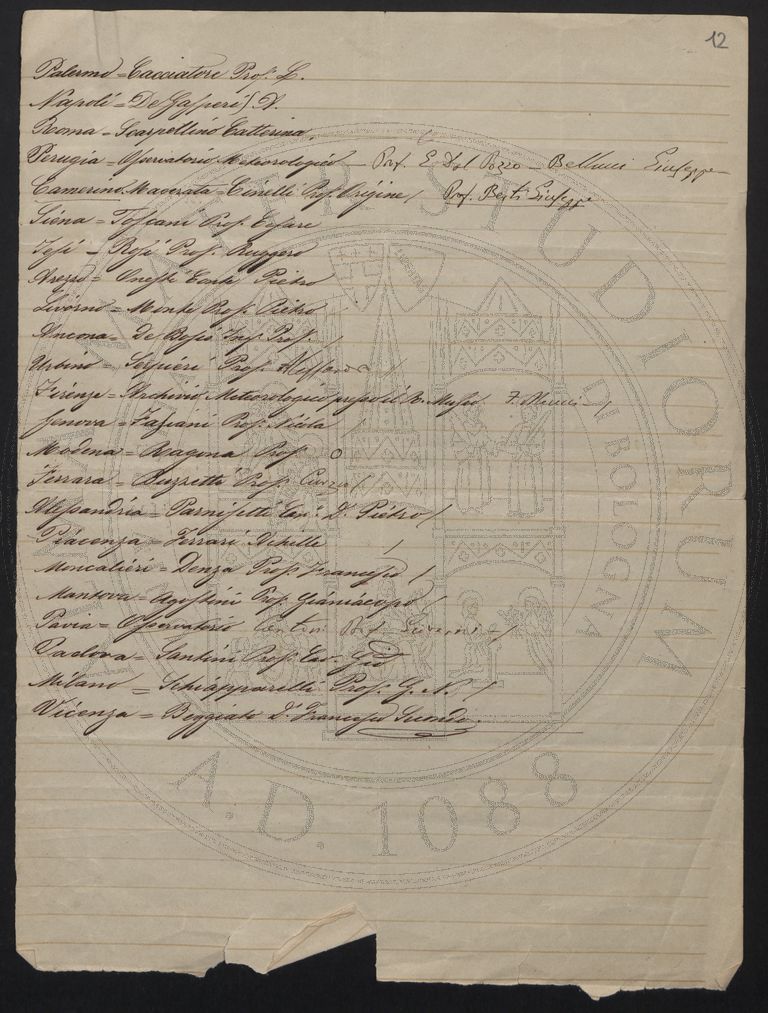 12
Palermo = Cacciatore Prof. L.
Napoli = De Gasperis A.
Roma = Scarpellino Catterina.
Perugia = Osservatorio Meteorologico — Prof. E. Dal Pozzo — Bellucci Giuseppe —
Camerino. Macerata = Cinelli Prof. Origine / Prof. Berti Giuseppe
Siena = Toscani Prof. Cesare
Jesi = Rosi Prof. Ruggero
Arezzo = Onesti Conte Pietro
Livorno = Monte Prof. Pietro /
Ancona = De Bosis Ing. Prof. /
Urbino = Serpieri Prof. Alessandro /
Firenze = Archivio Meteorologico presso il R. Museo F. Meucci — /
Genova = Fasiani Prof. Nicola /
Modena = Ragona Prof. O
Ferrara = Buzzetti Prof. Curzio /
Alessandria = Parnisetti Cav. Dr. Pietro /
Piacenza = Ferrari Achille /
Moncalieri = Denza Prof. Francesco /
Mantova = Agostini Prof. Gianiacopo /
Pavia = Osservatorio Cantoni Prof. Giovanni — /
Padova = Santini Prof. Cav. Gio
Milano = Schiapparelli Prof. G. V. /
Vicenza = Beggiato Dr. Francesco Secondo.
ALMA MATER STUDIORUM
UNIVERSITÀ DI BOLOGNA
A.D. 1088